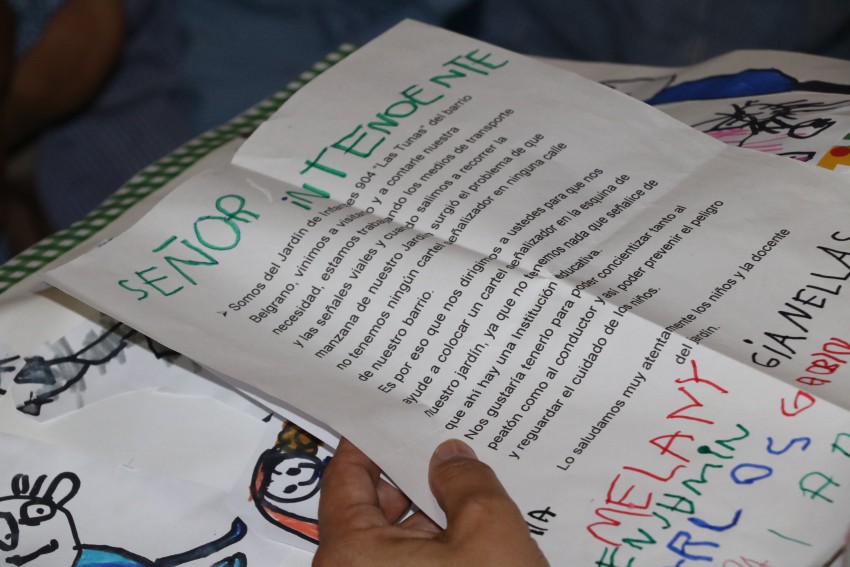 SEÑOR iNTENDENTE
➢ Somos del Jardín de Infantes 904 "Las Tunas" del barrio
Belgrano, vinimos a visitarlo y a contarle nuestra
necesidad, estamos trabajando los medios de transporte
y las señales viales y cuando salimos a recorrer la
manzana de nuestro Jardín surgió el problema de que
no tenemos ningún cartel señalizador en ninguna calle
de nuestro barrio.
Es por eso que nos dirigimos a ustedes para que nos
ayude a colocar un cartel señalizador en la esquina de
nuestro jardín, ya que no tenemos nada que señalice de
que ahí hay una institución educativa.
Nos gustaría tenerlo para poder concientizar tanto al
peatón como al conductor y así poder prevenir el peligro
y reguardar el cuidado de los niños.
Lo saludamos muy atentamente los niños y la docente
del jardín.
GIANELLAS
MELANY